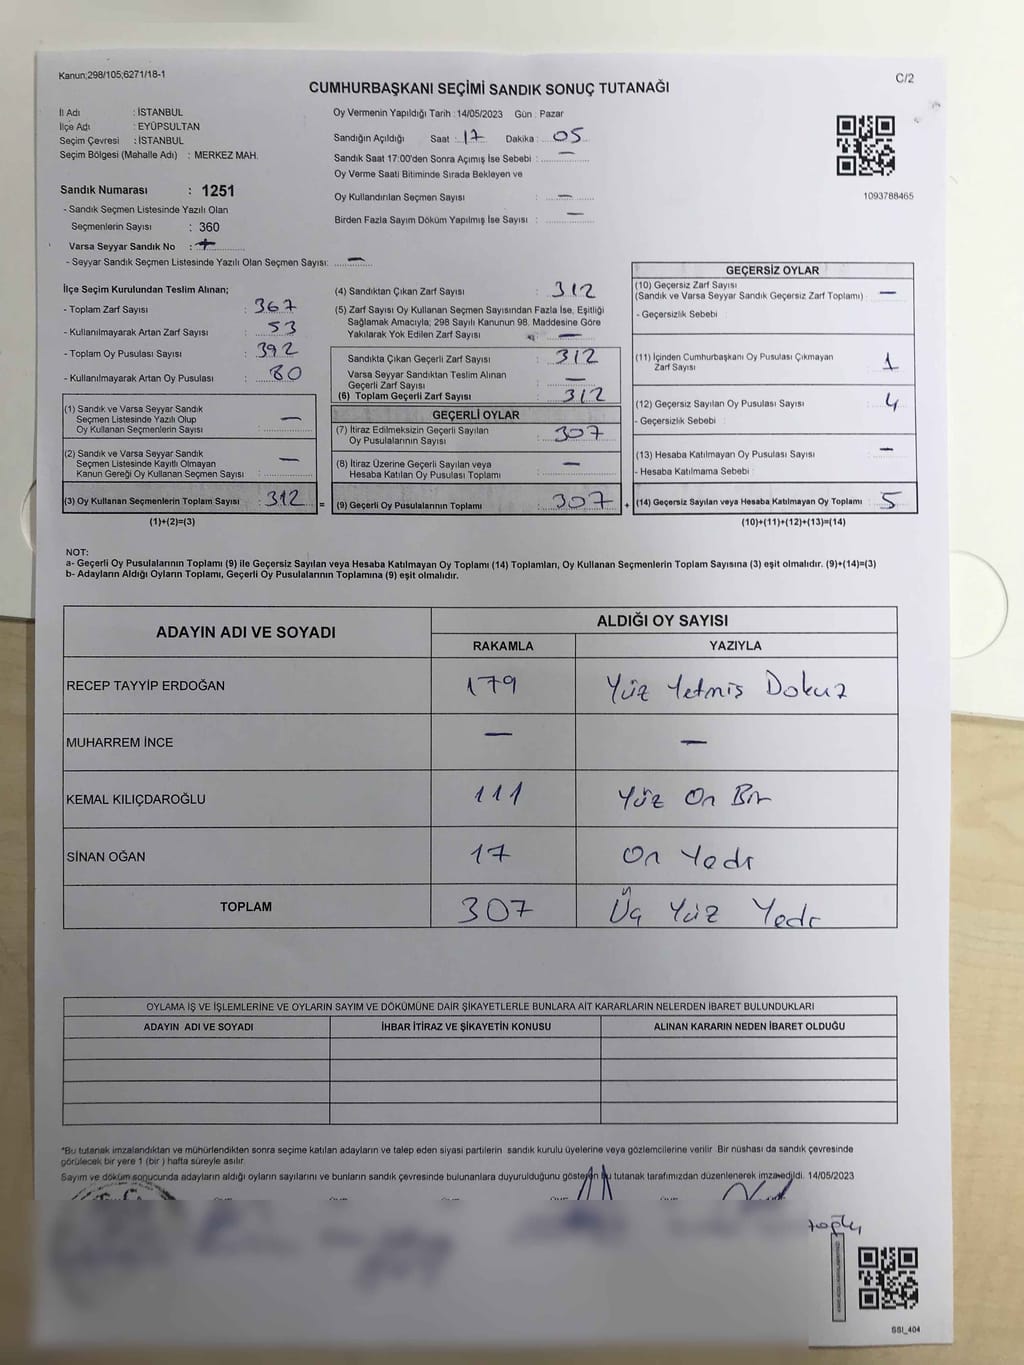 Kanun;298/105;6271/18-1
C/2
CUMHURBAŞKANI SEÇİMİ SANDIK SONUÇ TUTANAĞI
İl Adı : İSTANBUL
İlçe Adı : EYÜPSULTAN
Seçim Çevresi : İSTANBUL
Seçim Bölgesi (Mahalle Adı) : MERKEZ MAH.
Sandık Numarası : 1251
- Sandık Seçmen Listesinde Yazılı Olan
Seçmenlerin Sayısı : 360
Varsa Seyyar Sandık No :
- Seyyar Sandık Seçmen Listesinde Yazılı Olan Seçmen Sayısı: —
Oy Vermenin Yapıldığı Tarih :14/05/2023 Gün : Pazar
Sandığın Açıldığı Saat : 17 Dakika : 05
Sandık Saat 17:00'den Sonra Açımış İse Sebebi : —
Oy Verme Saati Bitiminde Sırada Bekleyen ve
Oy Kullandırılan Seçmen Sayısı : —
Birden Fazla Sayım Döküm Yapılmış İse Sayısı : —
1093788465
İlçe Seçim Kurulundan Teslim Alınan;
- Toplam Zarf Sayısı : 367
- Kullanılmayarak Artan Zarf Sayısı : 53
- Toplam Oy Pusulası Sayısı : 392
- Kullanılmayarak Artan Oy Pusulası : 80
(1) Sandık ve Varsa Seyyar Sandık
Seçmen Listesinde Yazılı Olup
Oy Kullanan Seçmenlerin Sayısı : —
(2) Sandık ve Varsa Seyyar Sandık
Seçmen Listesinde Kayıtlı Olmayan
Kanun Gereği Oy Kullanan Seçmen Sayısı : —
(3) Oy Kullanan Seçmenlerin Toplam Sayısı : 312 =
(1)+(2)=(3)
(4) Sandıktan Çıkan Zarf Sayısı : 312
(5) Zarf Sayısı Oy Kullanan Seçmen Sayısından Fazla İse, Eşitliği
Sağlamak Amacıyla; 298 Sayılı Kanunun 98. Maddesine Göre
Yakılarak Yok Edilen Zarf Sayısı —
Sandıkta Çıkan Geçerli Zarf Sayısı : 312
Varsa Seyyar Sandıktan Teslim Alınan
Geçerli Zarf Sayısı : —
(6) Toplam Geçerli Zarf Sayısı : 312
GEÇERLİ OYLAR
(7) İtiraz Edilmeksizin Geçerli Sayılan
Oy Pusulalarının Sayısı : 307
(8) İtiraz Üzerine Geçerli Sayılan veya
Hesaba Katılan Oy Pusulası Toplamı : —
(9) Geçerli Oy Pusulalarının Toplamı : 307 +
GEÇERSİZ OYLAR
(10) Geçersiz Zarf Sayısı
(Sandık ve Varsa Seyyar Sandık Geçersiz Zarf Toplamı) : —
- Geçersizlik Sebebi :
(11) İçinden Cumhurbaşkanı Oy Pusulası Çıkmayan
Zarf Sayısı : 1
(12) Geçersiz Sayılan Oy Pusulası Sayısı : 4
- Geçersizlik Sebebi :
(13) Hesaba Katılmayan Oy Pusulası Sayısı : —
- Hesaba Katılmama Sebebi :
(14) Geçersiz Sayılan veya Hesaba Katılmayan Oy Toplamı : 5
(10)+(11)+(12)+(13)=(14)
NOT:
a- Geçerli Oy Pusulalarının Toplamı (9) ile Geçersiz Sayılan veya Hesaba Katılmayan Oy Toplamı (14) Toplamları, Oy Kullanan Seçmenlerin Toplam Sayısına (3) eşit olmalıdır. (9)+(14)=(3)
b- Adayların Aldığı Oyların Toplamı, Geçerli Oy Pusulalarının Toplamına (9) eşit olmalıdır.
ADAYIN ADI VE SOYADI
ALDIĞI OY SAYISI
RAKAMLA YAZIYLA
RECEP TAYYİP ERDOĞAN 179 Yüz Yetmiş Dokuz
MUHARREM İNCE — —
KEMAL KILIÇDAROĞLU 111 Yüz On Bir
SİNAN OĞAN 17 On Yedi
TOPLAM 307 Üç Yüz Yedi
OYLAMA İŞ VE İŞLEMLERİNE VE OYLARIN SAYIM VE DÖKÜMÜNE DAİR ŞİKAYETLERLE BUNLARA AİT KARARLARIN NELERDEN İBARET BULUNDUKLARI
ADAYIN ADI VE SOYADI İHBAR İTİRAZ VE ŞİKAYETİN KONUSU ALINAN KARARIN NEDEN İBARET OLDUĞU
*Bu tutanak imzalandıktan ve mühürlendikten sonra seçime katılan adayların ve talep eden siyasi partilerin sandık kurulu üyelerine veya gözlemcilerine verilir. Bir nüshası da sandık çevresinde
görülecek bir yere 1 (bir ) hafta süreyle asılır.
Sayım ve döküm sonucunda adayların aldığı oyların sayılarını ve bunların sandık çevresinde bulunanlara duyurulduğunu gösteren bu tutanak tarafımızdan düzenlenerek imza edildi. 14/05/2023
SSI_404